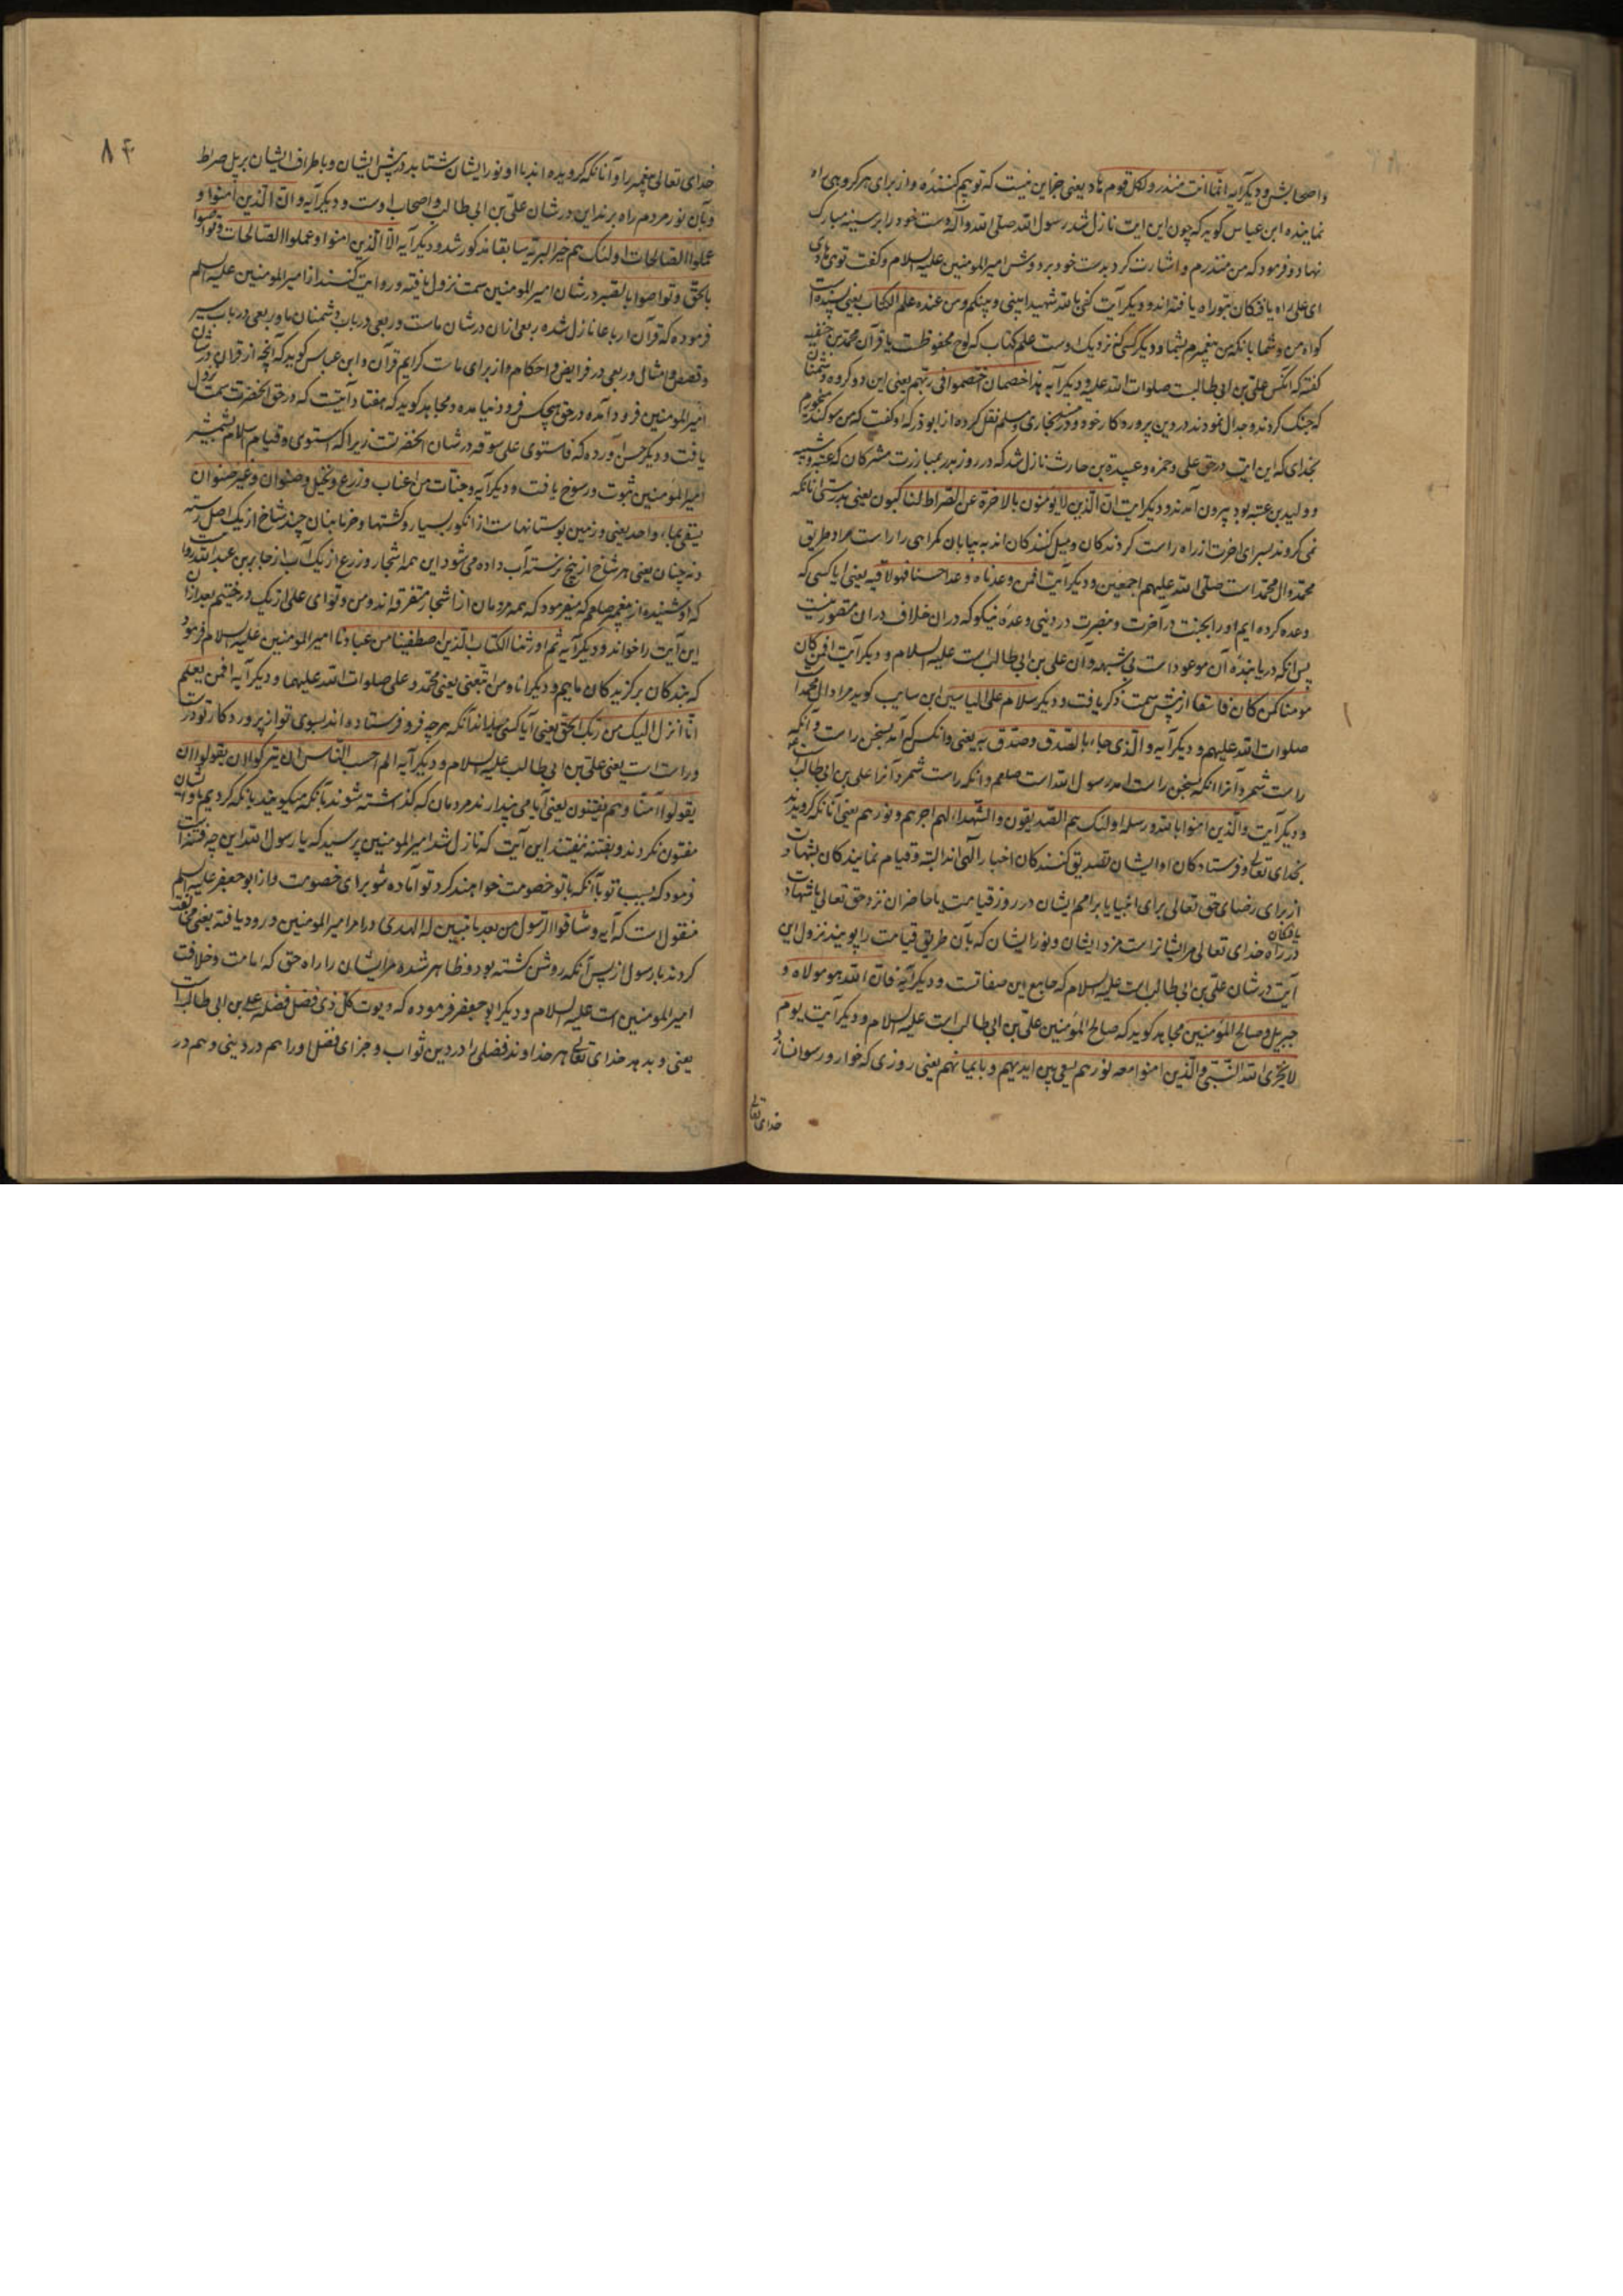 واصحابش و دیگر آیه انما انت منذر ولکل قوم هاد یعنی جز این نیست که تو بیم کننده و از برای هر کروهی راه
نماینده ابن عباس کوید که چون این ایت نازل شد رسول الله صلی الله و آله دست خود را بر سینه مبارک
نهاد و فرمود که من منذرم و اشارت کرد بدست خود بر دوش امیرالمومنین علیه السلام و کفت توی هادی
ای علی راه یافتکان بتو راه یافته اند و دیکر آیت کفی بالله شهیدا بینی و بینکم ومن عنده علم الکتاب یعنی بسنده است
کواه من و شما بانکه من پیغمبرم بشما و دیکر کسی که نزدیک اوست علم کتاب که لوح محفوظست یا قرآن محمد بن حنفیه
کفته که انکس علی بن ابی طالبست صلوات الله علیه و دیکر آیه هذا خصمان اختصموا فی ربهم یعنی این دو کروه دشمنان
که جنک کردند و جدال نمودند در دین پروردکار خود و در بخاری و مسلم نقل کرده از ابوذر که او کفت که من سوکند میخورم
بخدای که این ایت در حق علی و حمزه و عبیدة بن حارث نازل شد که در روز بدر بمبارزت مشرکان که عتبه و شیبه
و ولید بن عتبه بود بیرون آمدند و دیکر ایت ان الذین لا یؤمنون بالاخرة عن الصراط لناکبون یعنی بدرستی انانکه
نمی کروند بسرای اخرت از راه راست کردندکان و میل کنندکان اند به بیابان کمراهی را راست مراد طریق
محمد و ال محمد است صلی الله علیهم اجمعین و دیکر آیت افمن وعدناه وعدا حسنا فهو لاقیه یعنی ایا کسی که
وعده کرده ایم او را بجنت در آخرت و نصرت در دنیی وعدهٔ نیکو که دران خلاف دران متصور نیست
پس انکه دریابندهٔ آن موعود است بی شبهه و آن علی بن ابی طالب است علیه السلام و دیکر آیت افمن کان
مومنا کمن کان فاسقا از پیش سمت ذکر یافت و دیکر سلام علی الیاسین ابن سایب کوید مراد ال محمد است
صلوات الله علیهم و دیکر آیه والذی جاء بالصدق وصدق به یعنی و انکس که آمد بسخن راست و انکه
راست شمرد آنرا انکه بسخن راست امد رسول الله است صلعم و انکه راست شمرد آنرا علی بن ابی طالب است
و دیکر آیت والذین امنوا بالله ورسله اولئک هم الصدیقون والشهداء لهم اجرهم ونورهم یعنی آنانکه کرویدند
بخدای تعالی و فرستادکان او ایشان تصدیق کنندکان اخبار الهی اند البته و قیام نمایندکان بشهادت
از برای رضای حق تعالی برای انبیا یا بر امم ایشان در روز قیامت یا حاضران نزد حق تعالی یا شهادت یافتکان
در راه خدای تعالی مر ایشانراست مزد ایشان و نور ایشان که بآن طریق قیامت را پویند نزول این
آیت در شان علی بن ابی طالب است علیه السلام که جامع این صفاتست و دیکر آیه فان الله هو مولاه و
جبریل وصالح المؤمنین مجاهد کوید که صالح المؤمنین علی بن ابی طالب است علیه السلام و دیکر آیت یوم
لا یخزی الله النبی والذین امنوا معه نورهم یسعی بین ایدیهم وبایمانهم یعنی روزی که خوار و رسوا نسازد
خدای تعالی
۸۴
خدای تعالی پیغمبر را و آنانکه کرویده اند باو و نور ایشان شتابد در پیش ایشان و باطراف ایشان بر پل صراط
و بآن نور مردم راه برند این در شان علی بن ابی طالب و اصحاب اوست و دیکر آیه وان الذین امنوا و
عملوا الصالحات اولئک هم خیر البریه سابقا مذکور شد و دیکر آیه الا الذین امنوا وعملوا الصالحات وتواصوا
بالحق وتواصوا بالصبر در شان امیرالمومنین سمت نزول یافته و روایت کنند از امیرالمومنین علیه السلم
فرموده که قرآن ارباعا نازل شده ربعی ازان در شان ماست و ربعی در باب دشمنان ما و ربعی در باب سیر
و قصص و امثال و ربعی در فرایض و احکام و از برای ماست کرایم قرآن و ابن عباس کوید که آنچه از قران در شان
امیرالمومنین فرود آمده در حق هیچکس فرود نیامده و مجاهد کوید که هفتاد آیتست که در حق انحضرت سمت نزول
یافت و دیکر حسن آورده که فاستوی علی سوقه در شان انحضرتست زیرا که استوی و قیام اسلام بشمشیر
امیرالمؤمنین ثبوت و رسوخ یافت و دیکر آیه وجنات من اعناب وزرع ونخیل صنوان وغیر صنوان
یسقی بماء واحد یعنی و در زمین بوستانهاست از انکور بسیار و کشتها و خرمابنان چند شاخ از یک اصل رسته
و نه چنان یعنی هر شاخ از بیخ برسته آب داده می شود این همه اشجار و زرع از یک آب از جابر بن عبدالله روایت
که او شنیده از پیغمبر صلعم که میفرمود که همه مردمان از اشجار متفرقه اند و من و تو ای علی از یک درختیم بعد ازان
این آیت را خواند و دیکر آیه ثم اورثنا الکتاب الذین اصطفینا من عبادنا امیرالمومنین علیه السلام فرمود
که بندکان برکزیدکان ماییم و دیکر انا ومن اتبعنی یعنی محمد و علی صلوات الله علیهما و دیکر آیه افمن یعلم
انما انزل الیک من ربک الحق یعنی آیا کسی میداند آنکه هر چه فرو فرستاده اند بسوی تو از پروردکار تو درست
و راست است یعنی علی بن ابی طالب علیه السلام و دیکر آیه الم احسب الناس ان یترکوا ان یقولوا ان
یقولوا آمنا وهم لا یفتنون یعنی آیا می پندارند مردمان که کذاشته شوند بآنکه میکویند بانکه کرویدیم و ایشان
مفتون نکردند و بفتنه نیفتند این آیت که نازل شد امیرالمومنین پرسید که یا رسول الله این چه فتنه است
فرمود که بسبب تو یا آنکه با تو خصومت خواهند کرد تو آماده شو برای خصومت و از ابوجعفر علیه السلم
منقول است که آیه وشاقوا الرسول من بعد ما تبین له الهدی در امر امیرالمومنین ورود یافته یعنی مخالفت
کردند با رسول از پس آنکه روشن کشته بود و ظاهر شده مر ایشان را راه حق که امامت و خلافت
امیرالمومنین است علیه السلام و دیکر ابوجعفر فرموده که ویوت کل ذی فضل فضله علی بن ابی طالب است
یعنی و بدهد خدای تعالی هر خداوند فضلی را در دین ثواب و جزای فضل او را هم در دنیی و هم در